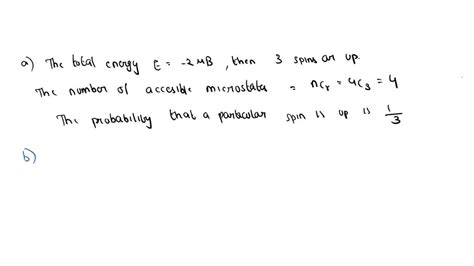 a) The total energy E = -2μB, then 3 spins are up.
The number of accesible microstates = nCr = 4C3 = 4
The probability that a particular spin is up is 1/3
b)